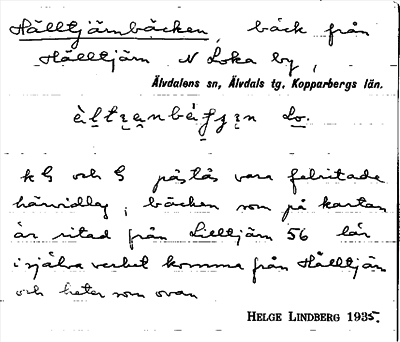 Hålltjärnbäcken, bäck från
Hålltjärn N Loka by,
Älvdalens sn, Älvdals tg, Kopparbergs län.
Lo.
k G och G påstås vara felritade
härvidlag; bäcken som på kartan
är ritad från Lilltjärn 56 lär
i själva verket komma från Hålltjärn
och heter som ovan
HELGE LINDBERG 1935.